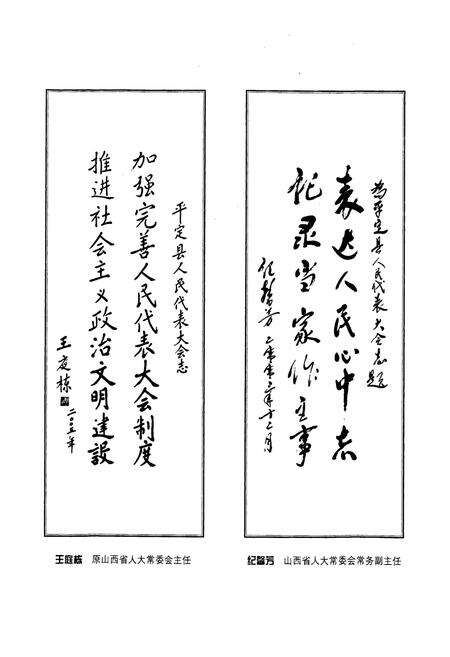 为平定县人民代表大会志题
表达人民心中志
记录当家作主事
纪馨芳 二零零五年十二月
纪馨芳 山西省人大常委会常务副主任
平定县人民代表大会志
加强完善人民代表大会制度
推进社会主义政治文明建设
王庭栋 二〇〇五年
王庭栋 原山西省人大常委会主任